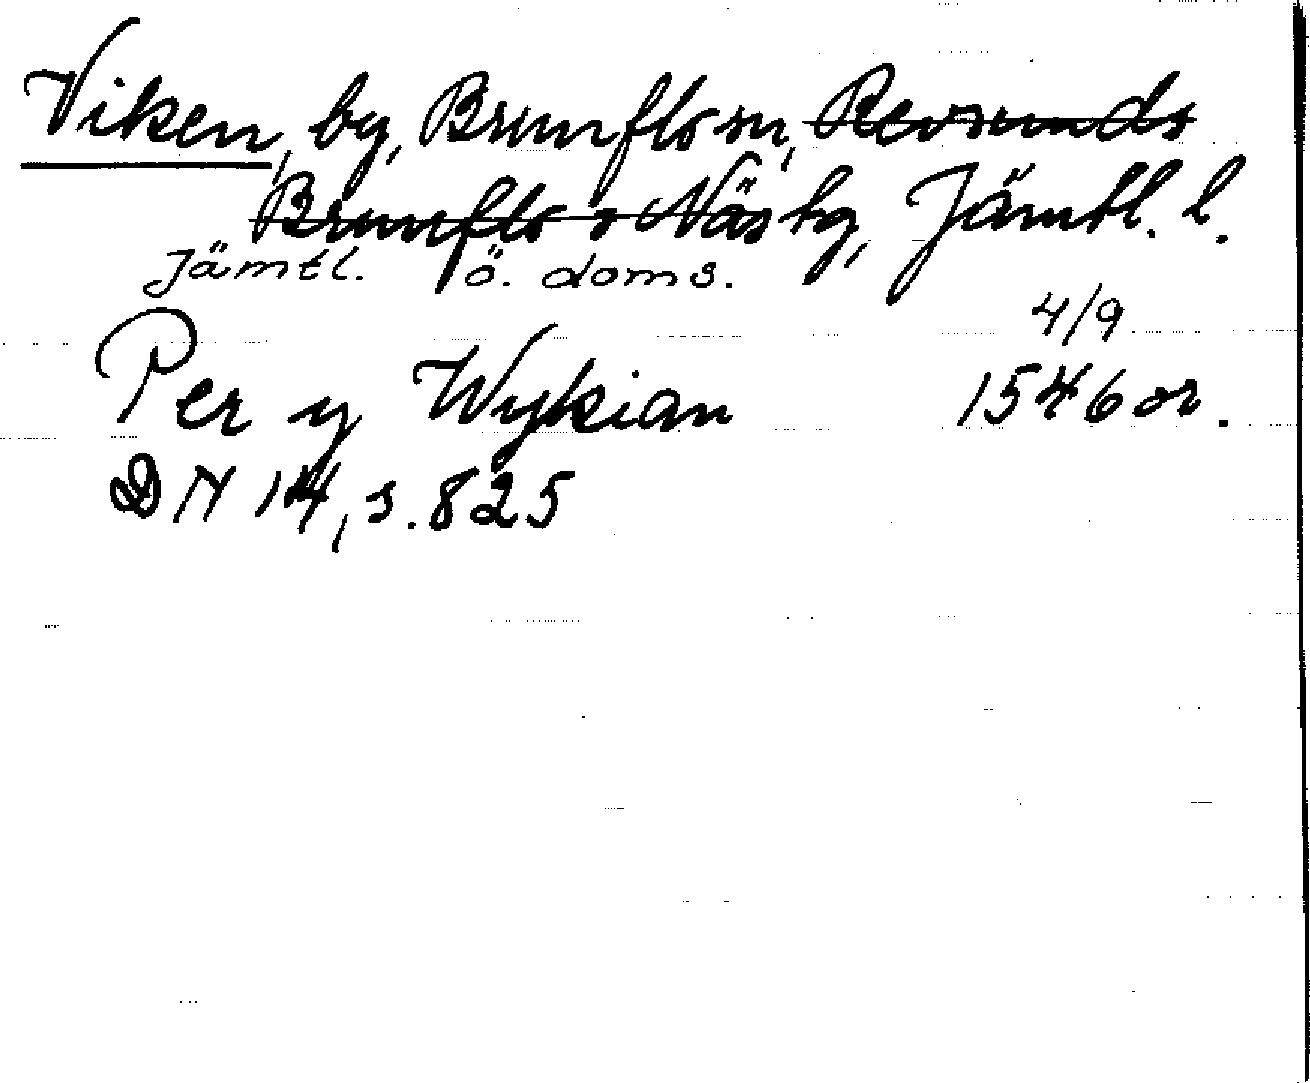 Viken, by, Brunflo sn, Revsunds
Brunflo o Näs tg, Jämtl. l.
Jämtl. ö. doms.
4/9
Per y Wykian 1546 or.
DN 14, s. 825